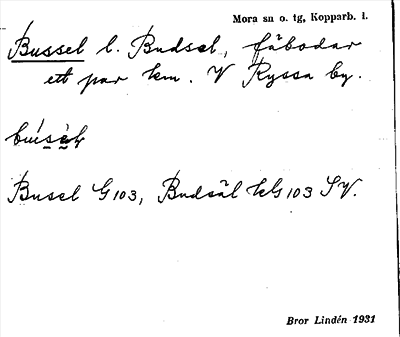 Mora sn o. tg, Kopparb. l.
Bussel l. Budsel, fäbodar
ett par km. V Ryssa by.
Busel G 103, Budsäl kG 103 SV.
Bror Lindén 1931